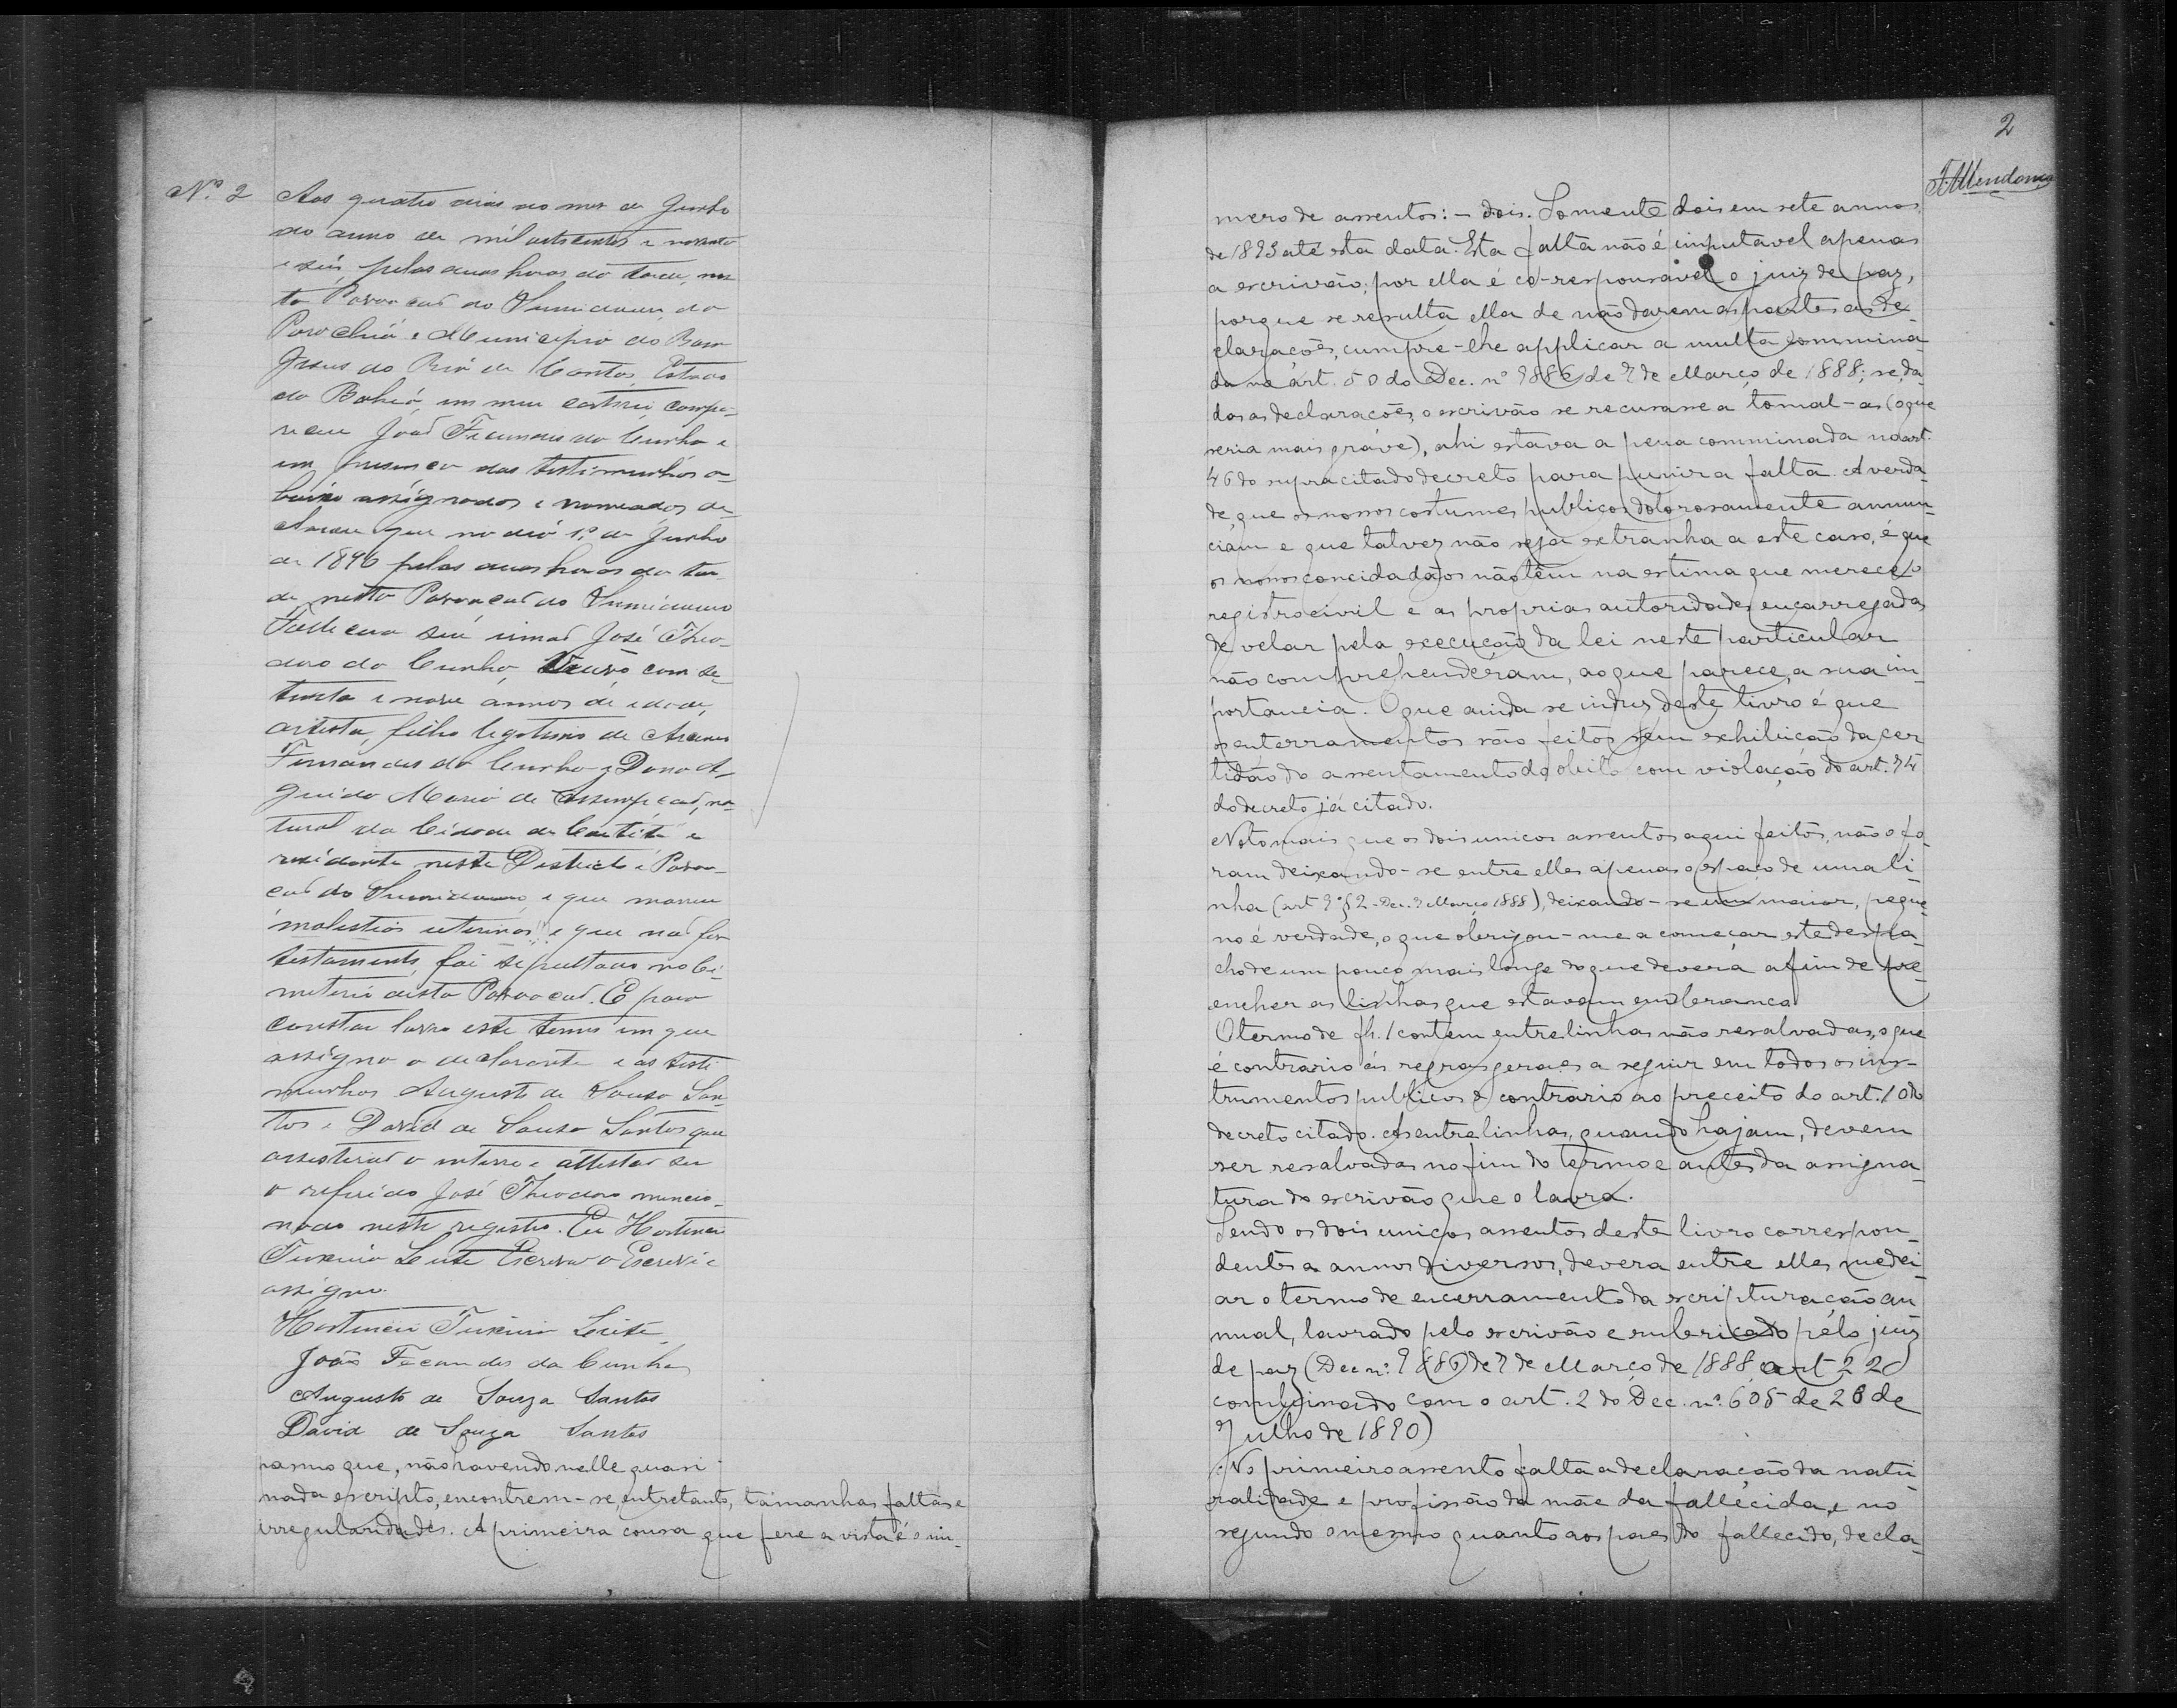 Nº 2
Aos quatro dias do mes de Junho
do anno de mil oitocentos e noventa
e seis, pelas duas horas da tarde, nes
ta Povoação do Sumidouro, da
Parochia e Municipio do Bom
Jesus do Rio de Contas, Estado
da Bahia, em meu cartorio compa-
receu João Fernandes da Cunha e
em presença das testimunhas a-
baixo assignados e nomeados de-
clarou que no dia 1º de Junho
de 1896 pelas duas horas da tar-
de nesta Povoação do Sumidouro
Falleceu seu irmão José Theo-
doro da Cunha, Viuvo com se-
tenta e nove annos de idade,
artista, filho legitimo de
Fernandes da Cunha e Dona A
gueida Maria de Assumpção, na-
tural da Cidade de Caetité e
residente neste Districto e Povoa-
ção do Sumidouro e que morreu
molestias interinas e que não fez
testamento, foi sepultado no Ci-
miterio desta Povoação. E para
constar lavro este termo em que
assigno o declarante e as testi
munhas Augusto de Souza San-
tos e David de Souza Santos que
assisterão o enterro e attestão ser
o referido José Theodoro mencio-
nado neste registro. Eu
Leite Escrivão o Escrevi e
assigno.
Leite
João Fernandes da Cunha
Augusto de Souza Santos
David de Souza Santos
pasmo que, não havendo nelle quasi
nada escripto, encontrem-se, entretanto, tamanhas faltas e
irregularidades. A primeira cousa que fere a vista é o nu-
2
FMendonça
mero de assentos: - dois. Somente dois em sete annos,
de 1893 até esta data. Esta falta não é imputavel apenas
a escrivão; por ella é co-responsavel o juiz de paz,
porque se resulta ella de não darem as partes as de-
clarações, cumpre-lhe applicar a multa commina-
da no art. 50 do Dec. nº 9886 de 7 de Março de 1888; se, da-
das as declarações, o escrivão se recusasse a tomal-as (o que
seria mais grave), ahi estava a pena comminada no art.
46 do supracitado decreto para punir a falta. A verda-
de, que os nossos costumes publicos dolorosamente annun-
ciam e que talvez não seja extranha a este caso, é que
os nossos concidadãos não têm na estima que merece o
registro civil e as proprias autoridades encarregadas
de velar pela execução da lei neste particular
não comprehendêram, ao que parece, a sua im-
portancia. O que ainda se induz deste livro é que
os enterramentos são feitos sem exhibição da cer
tidão do assentamento do obito com violação do art. 74
do decreto já citado.
Noto mais que os dois unicos assentos aqui feitos, não o fo-
ram deixando-se entre elles apenas o espaço de uma li-
nha (art 9 § 2 - Dec. 7 Março 1888), deixando-se um maior, peque-
no é verdade, o que obrigou-me a começar este despa-
cho de um pouco mais longe do que devera afim de pre-
encher as linhas que estavam em branco.
O termo de fl. 1 contem entrelinhas não resalvadas, o que
é contrario ás regras geraes a seguir em todos os ins-
trumentos publicos e contrario ao preceito do art. 10 do
decreto citado. As entrelinhas, quando hajam, devem
ser resalvadas no fim do termo e antes da assigna-
tura do escrivão que o lavra.
Sendo os dois unicos assentos deste livro correspon-
dentes a annos diversos, devera entre elles medei-
ar o termo de encerramento da escripturação an
nual, lavrado pelo escrivão e rubricado pelo juiz
de paz (Dec nº 9886 de 7 de Março de 1888, art 22
combinado com o art. 2 do Dec. nº 605 de 26 de
Julho de 1890)
No primeiro assento falta a declaração da natu
ralidade e profissão da mãe da fallecida, e no
segundo o mesmo quanto aos paes do fallecido, decla-